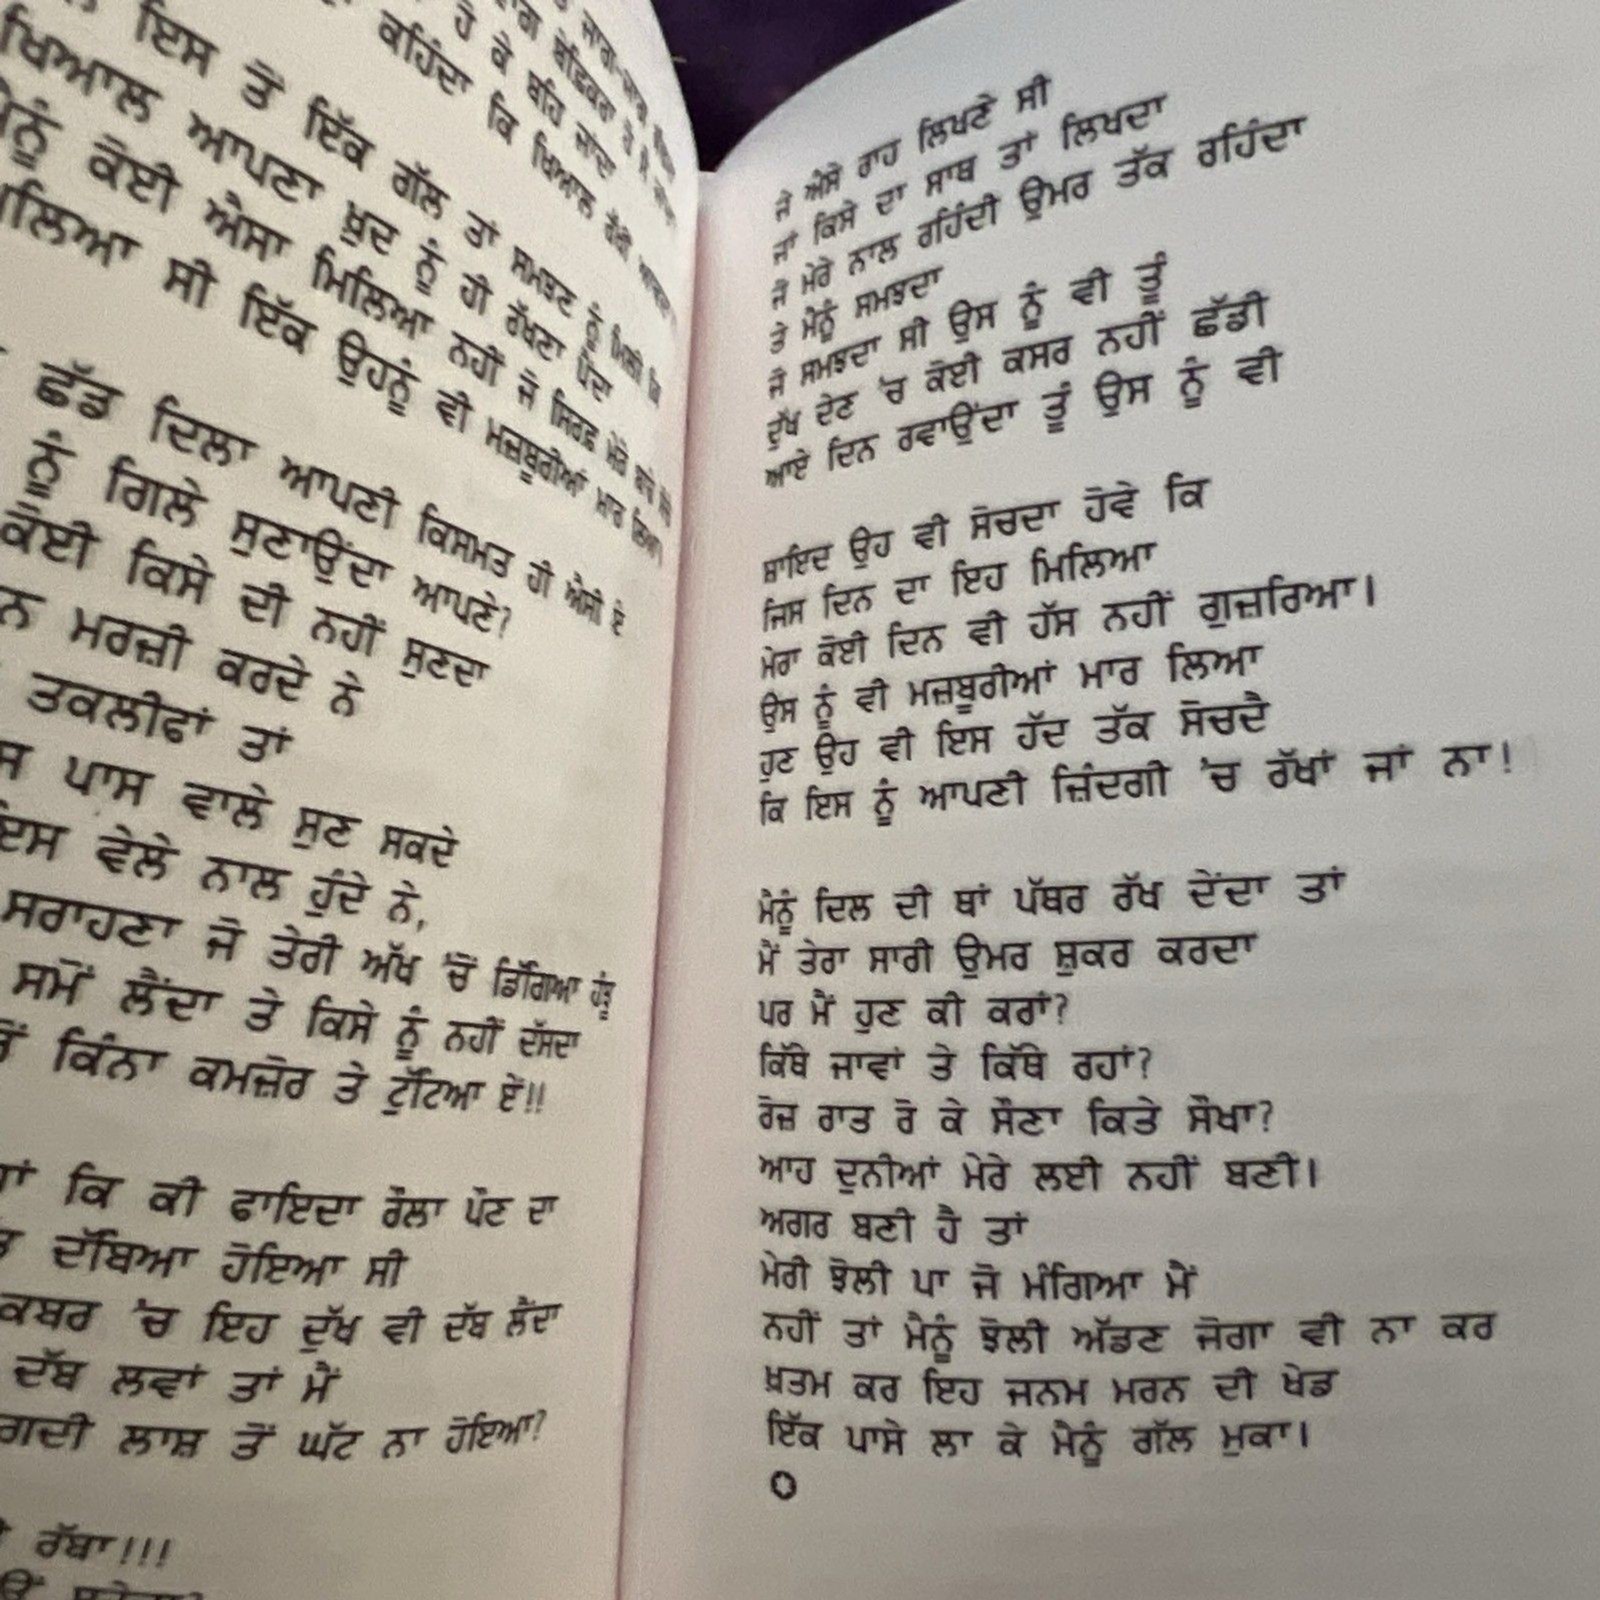 ਕਹਿੰਦਾ ਕਿ ਖਿਆਲ ਰੱਖੀਂ
ਇਸ ਤੋਂ ਇੱਕ ਗੱਲ ਤਾਂ ਸਮਝਣ ਨੂੰ ਮਿਲੀ ਕਿ
ਖਿਆਲ ਆਪਣਾ ਖ਼ੁਦ ਨੂੰ ਹੀ ਰੱਖਣਾ ਪੈਂਦਾ
ਕੋਈ ਐਸਾ ਮਿਲਿਆ ਨਹੀਂ ਜੋ ਸਿਰਫ਼ ਮੇਰੇ
ਸੀ ਇੱਕ ਉਹਨੂੰ ਵੀ ਮਜ਼ਬੂਰੀਆਂ ਮਾਰ ਲਿਆ।
ਛੱਡ ਦਿਲਾ ਆਪਣੀ ਕਿਸਮਤ ਹੀ ਐਸੀ ਏ
ਨੂੰ ਗਿਲੇ ਸੁਣਾਉਂਦਾ ਆਪਣੇ?
ਕੋਈ ਕਿਸੇ ਦੀ ਨਹੀਂ ਸੁਣਦਾ
ਮਰਜ਼ੀ ਕਰਦੇ ਨੇ
ਤਕਲੀਫਾਂ ਤਾਂ
ਪਾਸ ਵਾਲੇ ਸੁਣ ਸਕਦੇ
ਵੇਲੇ ਨਾਲ ਹੁੰਦੇ ਨੇ,
ਸਰਾਹਣਾ ਜੋ ਤੇਰੀ ਅੱਖ 'ਚੋਂ ਡਿੱਗਿਆ ਹੰਝੂ
ਸਮੋਂ ਲੈਂਦਾ ਤੇ ਕਿਸੇ ਨੂੰ ਨਹੀਂ ਦੱਸਦਾ
ਕਿੰਨਾ ਕਮਜ਼ੋਰ ਤੇ ਟੁੱਟਿਆ ਏਂ!!
ਕਿ ਕੀ ਫਾਇਦਾ ਰੌਲਾ ਪੌਣ ਦਾ
ਦੱਬਿਆ ਹੋਇਆ ਸੀ
ਕਬਰ 'ਚ ਇਹ ਦੁੱਖ ਵੀ ਦੱਬ ਲੈਂਦਾ
ਦੱਬ ਲਵਾਂ ਤਾਂ ਮੈਂ
ਲਾਸ਼ ਤੋਂ ਘੱਟ ਨਾ ਹੋਇਆ?
ਰੱਬਾ!!!
ਜੇ ਐਸੇ ਰਾਹ ਲਿਖਣੇ ਸੀ
ਜਾਂ ਕਿਸੇ ਦਾ ਸਾਥ ਤਾਂ ਲਿਖਦਾ
ਜੋ ਮੇਰੇ ਨਾਲ ਰਹਿੰਦੀ ਉਮਰ ਤੱਕ ਰਹਿੰਦਾ
ਤੇ ਮੈਨੂੰ ਸਮਝਦਾ
ਜੋ ਸਮਝਦਾ ਸੀ ਉਸ ਨੂੰ ਵੀ ਤੂੰ
ਦੁੱਖ ਦੇਣ 'ਚ ਕੋਈ ਕਸਰ ਨਹੀਂ ਛੱਡੀ
ਆਏ ਦਿਨ ਰਵਾਉਂਦਾ ਤੂੰ ਉਸ ਨੂੰ ਵੀ
ਸ਼ਾਇਦ ਉਹ ਵੀ ਸੋਚਦਾ ਹੋਵੇ ਕਿ
ਜਿਸ ਦਿਨ ਦਾ ਇਹ ਮਿਲਿਆ
ਮੇਰਾ ਕੋਈ ਦਿਨ ਵੀ ਹੱਸ ਨਹੀਂ ਗੁਜ਼ਰਿਆ।
ਉਸ ਨੂੰ ਵੀ ਮਜ਼ਬੂਰੀਆਂ ਮਾਰ ਲਿਆ
ਹੁਣ ਉਹ ਵੀ ਇਸ ਹੱਦ ਤੱਕ ਸੋਚਦੈ
ਕਿ ਇਸ ਨੂੰ ਆਪਣੀ ਜ਼ਿੰਦਗੀ 'ਚ ਰੱਖਾਂ ਜਾਂ ਨਾ!
ਮੈਨੂੰ ਦਿਲ ਦੀ ਥਾਂ ਪੱਥਰ ਰੱਖ ਦੇਂਦਾ ਤਾਂ
ਮੈਂ ਤੇਰਾ ਸਾਰੀ ਉਮਰ ਸ਼ੁਕਰ ਕਰਦਾ
ਪਰ ਮੈਂ ਹੁਣ ਕੀ ਕਰਾਂ?
ਕਿੱਥੇ ਜਾਵਾਂ ਤੇ ਕਿੱਥੇ ਰਹਾਂ?
ਰੋਜ਼ ਰਾਤ ਰੋ ਕੇ ਸੌਣਾ ਕਿਤੇ ਸੌਖਾ?
ਆਹ ਦੁਨੀਆਂ ਮੇਰੇ ਲਈ ਨਹੀਂ ਬਣੀ।
ਅਗਰ ਬਣੀ ਹੈ ਤਾਂ
ਮੇਰੀ ਝੋਲੀ ਪਾ ਜੋ ਮੰਗਿਆ ਮੈਂ
ਨਹੀਂ ਤਾਂ ਮੈਨੂੰ ਝੋਲੀ ਅੱਡਣ ਜੋਗਾ ਵੀ ਨਾ ਕਰ
ਖ਼ਤਮ ਕਰ ਇਹ ਜਨਮ ਮਰਨ ਦੀ ਖੇਡ
ਇੱਕ ਪਾਸੇ ਲਾ ਕੇ ਮੈਨੂੰ ਗੱਲ ਮੁਕਾ।